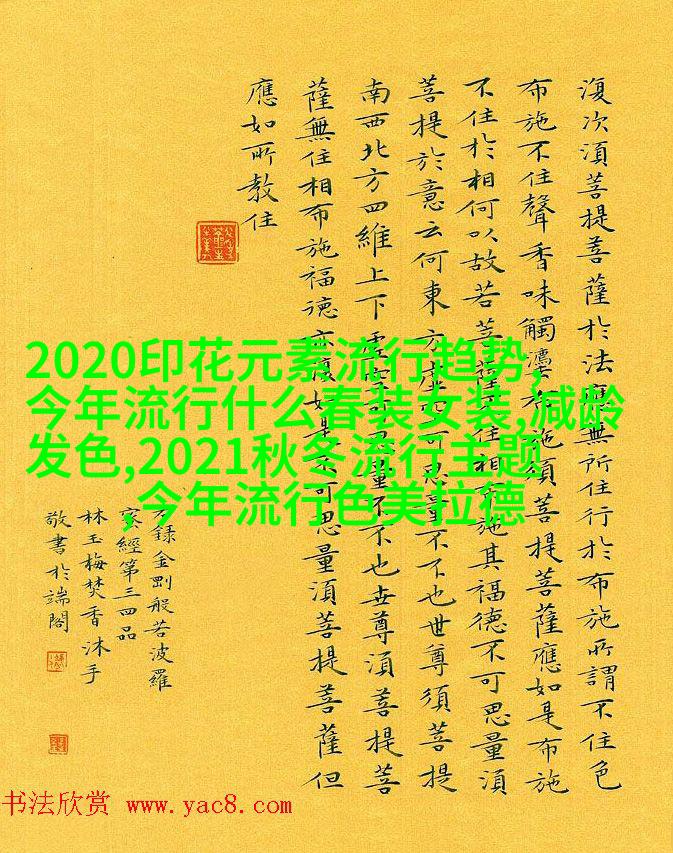 復次須菩提菩薩於法應無所住行於布施所謂不住色
布施不住聲香味觸灋布施須菩提菩薩應如是布施
不住於相何以故若菩薩不住相布施其福德不可思量須
菩提於意云何東方虛空可思量不不也世尊須菩提
南西北方四維上下虛空可思量不不也世尊須菩提菩
薩無住相布施福德亦復如是不可思量須菩提菩薩但
應如所教住
2020印花元素流行趋势,
今年流行什么春装女装,减龄
发色,2021秋冬流行主题
,今年流行色美拉德
錄金剛般若波羅
蜜經第三四品
林玉梅焚香沐手
敬書於端閣
书法欣赏 www.yac8.com